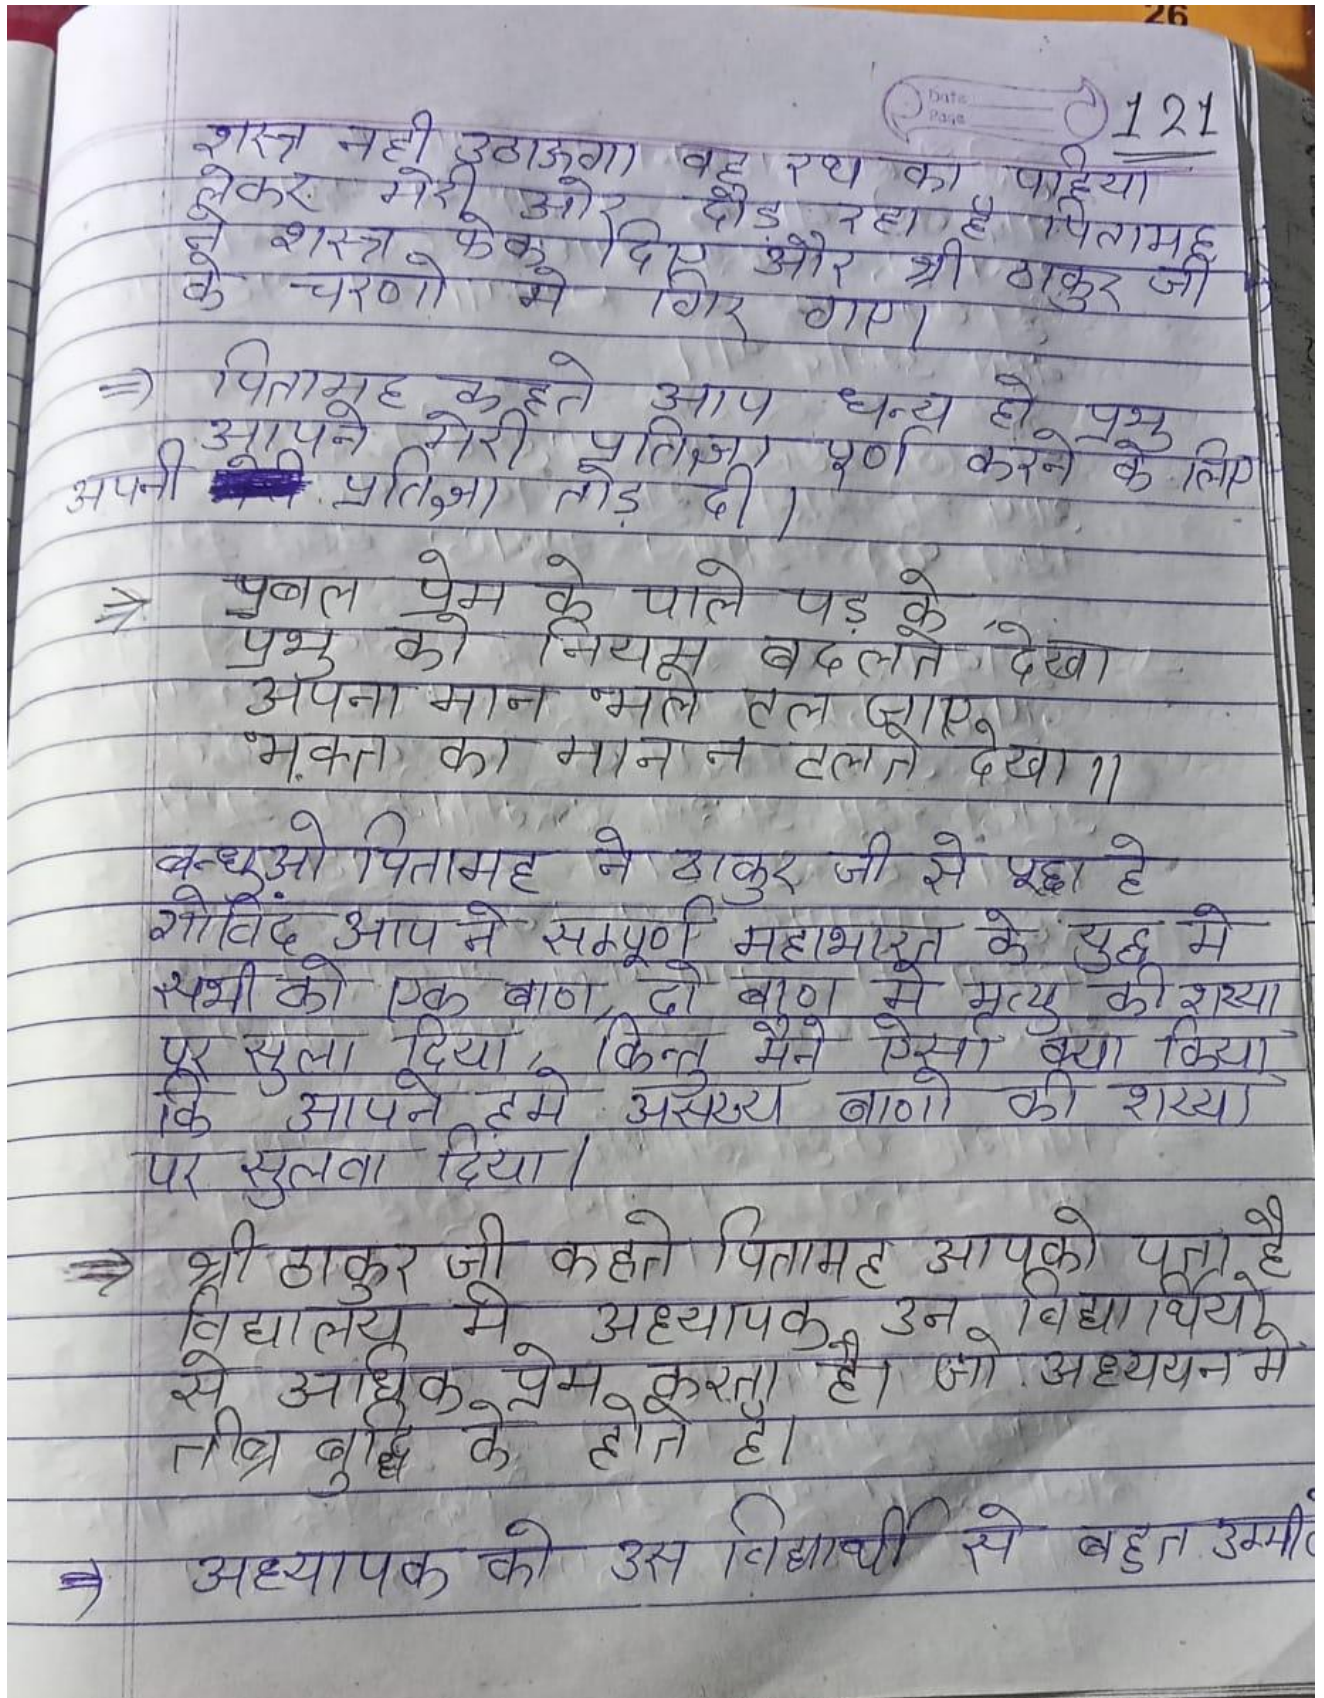 26
Date
Page
121
शस्त्र नही उठाऊगा वह रथ का पहिया
लेकर मेरी ओर दौड़ रहा है पितामह
ने शस्त्र फेक दिए और श्री ठाकुर जी
के चरणो मे गिर गए।
⇒ पितामह कहते आप धन्य हो प्रभु
आपने मेरी प्रतिज्ञा पूर्ण करने के लिए
अपनी प्रतिज्ञा तोड़ दी।
⇒ प्रबल प्रेम के पाले पड़ के,
प्रभु को नियम बदलते देखा
अपना मान भले टल जाए,
भक्त का मान न टलते देखा॥
बन्धुओ पितामह ने ठाकुर जी से पूछा हे
गोविंद आप ने सम्पूर्ण महाभारत के युद्ध मे
सभी को एक बाण, दो बाण मे मृत्यु की शय्या
पर सुला दिया, किन्तु मैने ऐसा क्या किया
कि आपने हमे असख्य बाणो की शय्या
पर सुलवा दिया।
⇒ श्री ठाकुर जी कहते पितामह आपको पता है
विद्यालय मे अध्यापक उन विद्यार्थियो
से अधिक प्रेम करता है। जो अध्ययन मे
तीव्र बुद्धि के होते है।
⇒ अध्यापक को उस विद्यार्थी से बहुत